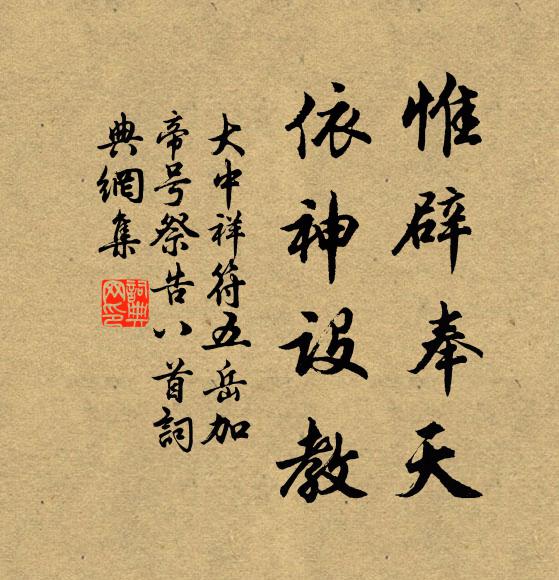 惟辟奉天
依神設教
大中祥符五岳加
帝号祭告八首詞
典網集
詞典網印